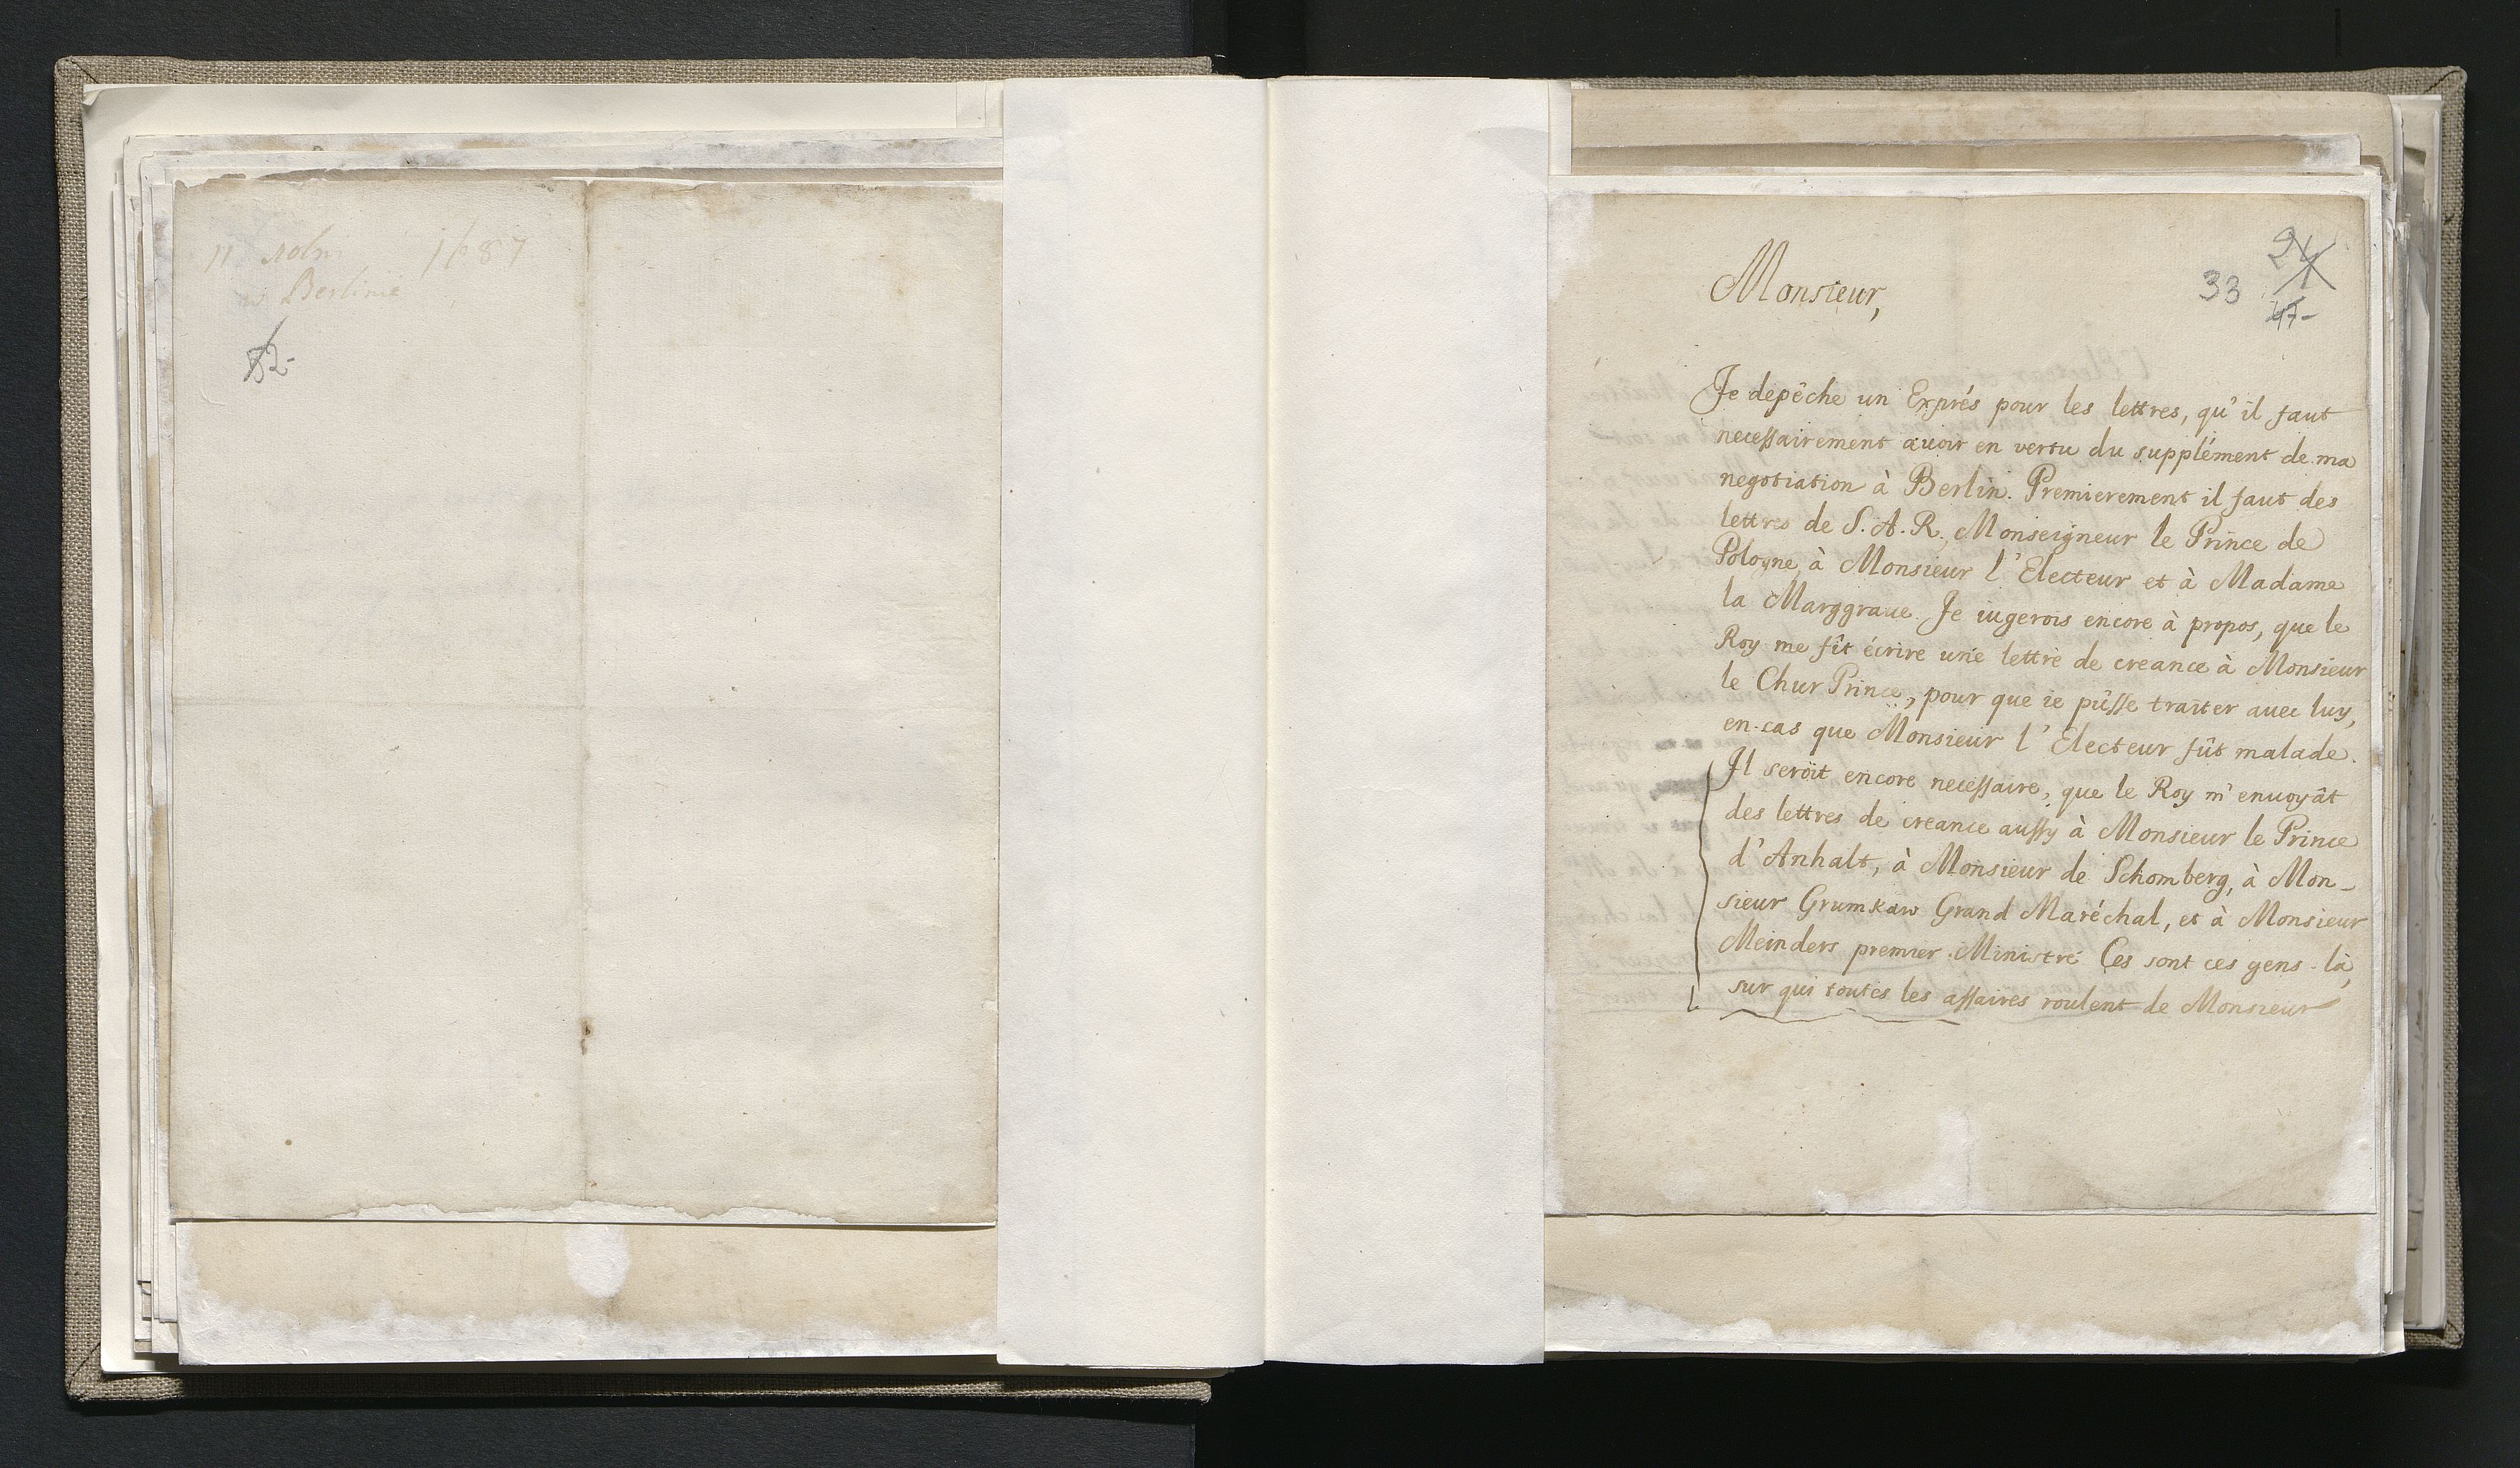 1687
w Berlinie
52-
Monsieur,
33
24
47-
Je depêche un Exprés pour les lettres, qu'il faut
necessairement auoir en vertu du supplément de ma
negotiation à Berlin. Premierement il faut des
lettres de S. A. R. Monseigneur le Prince de
Pologne, à Monsieur l'Electeur et à Madame
la Marggraue. Je iugerois encore à propos, que le
Roy me fît écrire une lettre de creance à Monsieur
le Chur Prince, pour que ie pûsse traiter auec luy,
en-cas que Monsieur l'Electeur fût malade.
Il seroit encore necessaire, que le Roy m'enuoyât
des lettres de creance aussy à Monsieur le Prince
d'Anhalt, à Monsieur de Schomberg, à Mon-
sieur Grumkaw Grand Maréchal, et à Monsieur
Meinders premier Ministre Ces sont ces gens-là,
sur qui toutes les affaires roulent de Monsieur